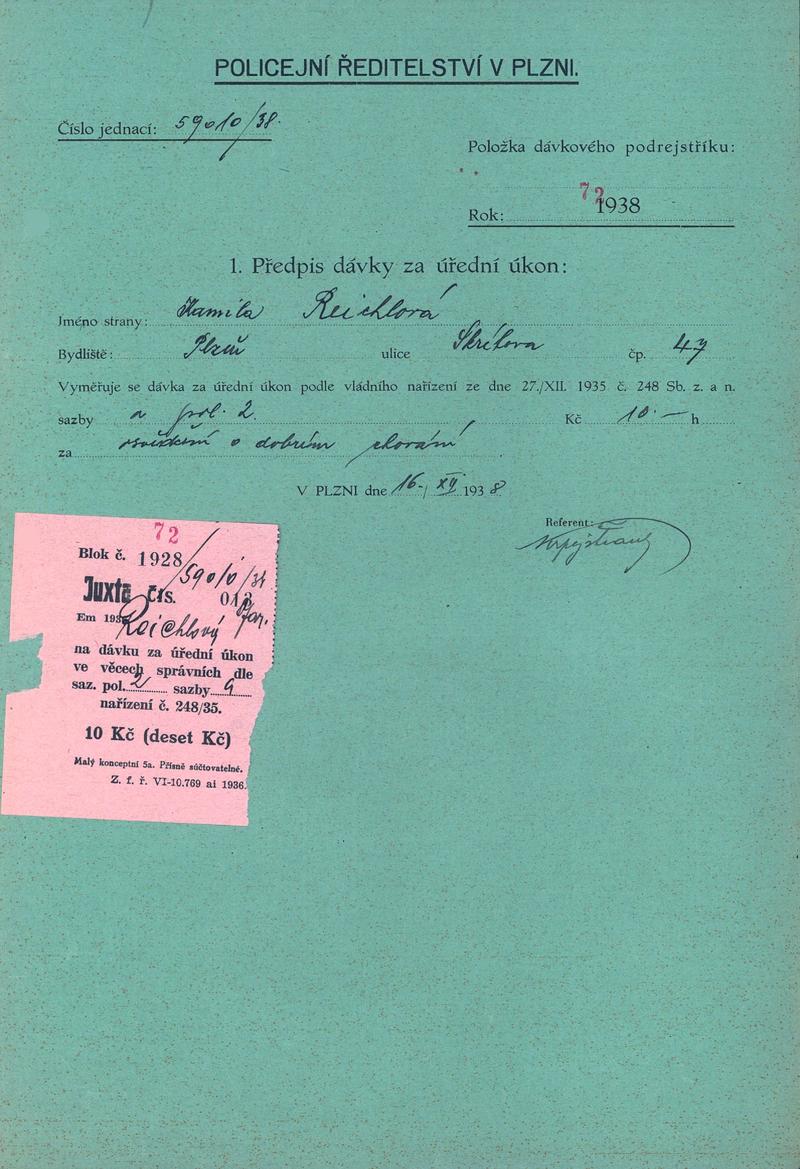 POLICEJNÍ ŘEDITELSTVÍ V PLZNI.
Číslo jednací: 59010/38.
Položka dávkového podrejstříku:
72
Rok: 1938
1. Předpis dávky za úřední úkon:
Jméno strany: Kamila Reichlová
Bydliště: Plzeň ulice Skrétova čp. 47
Vyměřuje se dávka za úřední úkon podle vládního nařízení ze dne 27./XII. 1935 č. 248 Sb. z. a n.
sazby a pol. 2. Kč 10.— h
za osvědčení o dobrém chování
V PLZNI dne 16./XII. 1938
Referent:
72
Blok č. 1928
59010/38
Juxta čís.
Em 193
Reichlový
na dávku za úřední úkon
ve věcech správních dle
saz. pol. 2 sazby a
nařízení č. 248/35.
10 Kč (deset Kč)
Malý konceptní 5a. Přísně súčtovatelné.
Z. f. ř. VI-10.769 ai 1936.